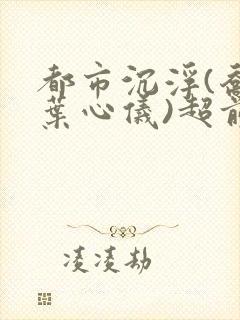 都市沉浮(乔
葉心儀)超前
凌凌劫